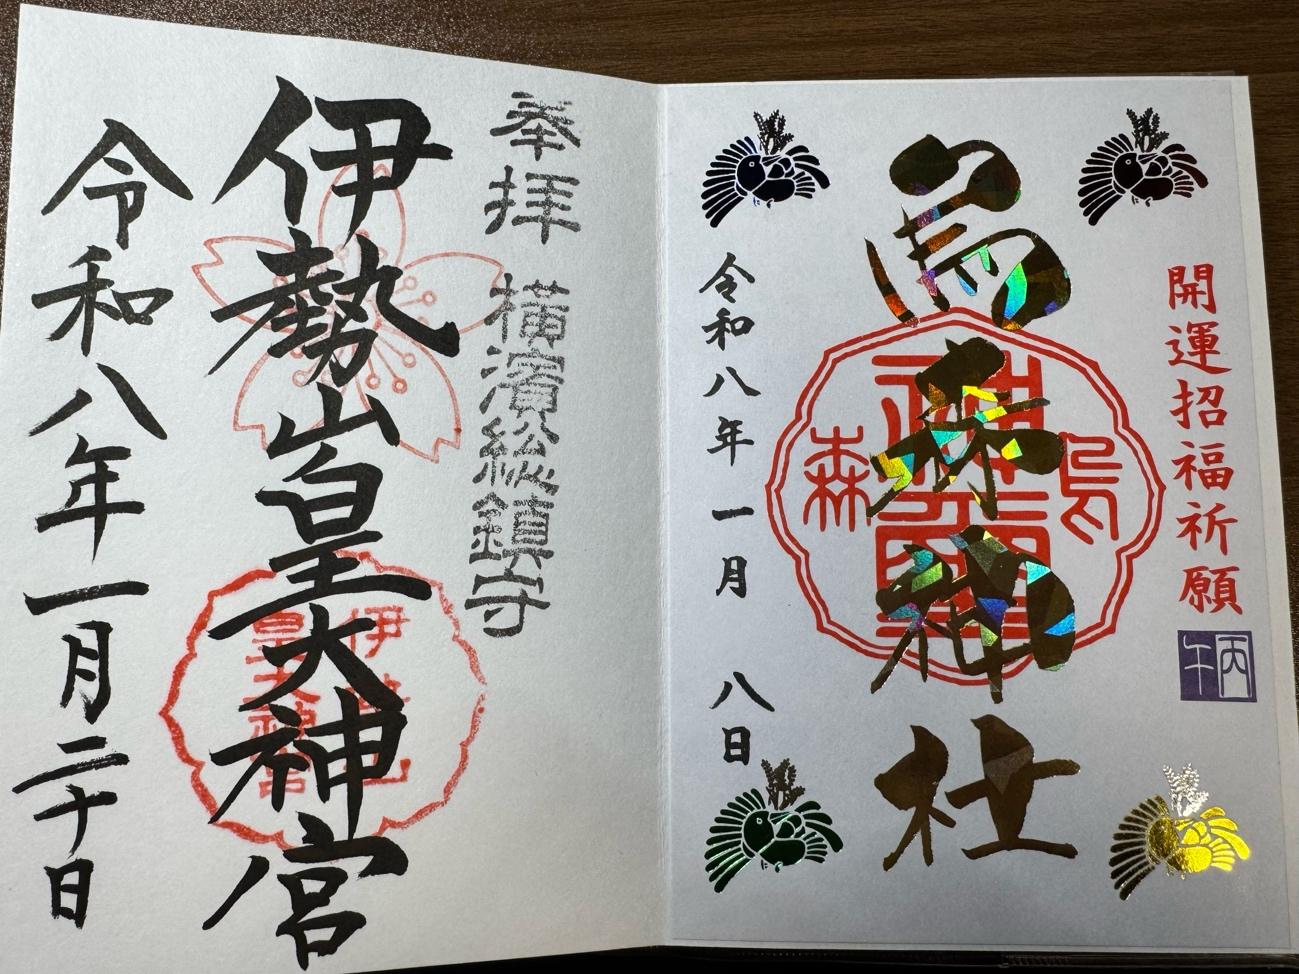 開運招福祈願
丙午
烏森神社
烏森
神璽
令和八年一月 八日
奉拝 横濱総鎮守
伊勢山皇大神宮
令和八年一月二十日